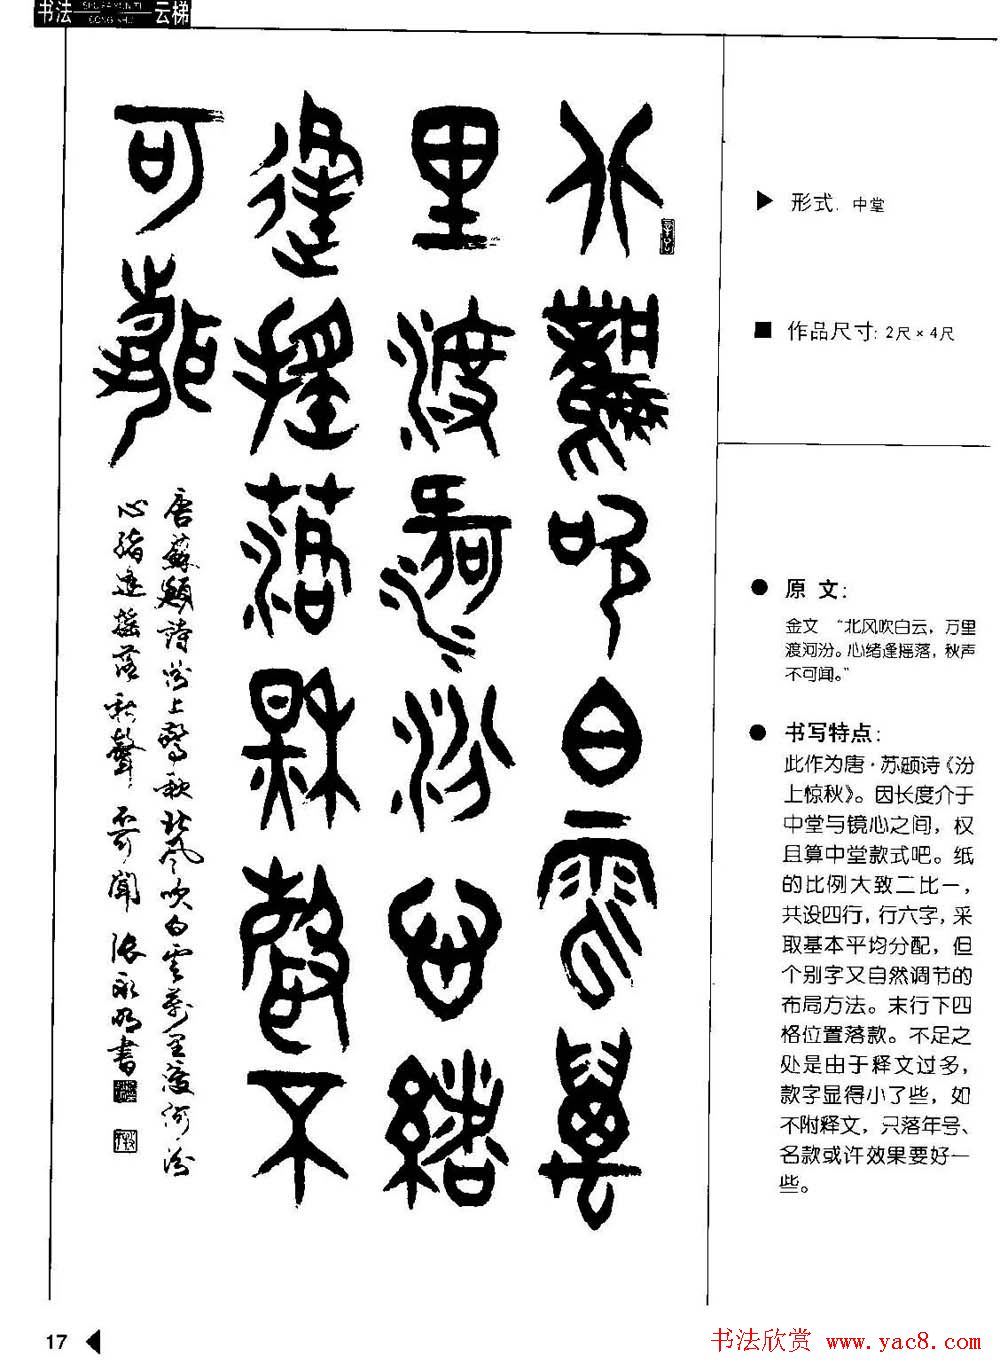 书法 云梯
SHU FA YUN TI
北风吹白云万
里渡河汾心绪
逢摇落秋声不
可闻
唐蘇頲詩汾上驚秋北風吹白雲萬里渡河汾
心緒逢搖落秋聲不可聞 張永明書
▶ 形式: 中堂
■ 作品尺寸: 2尺×4尺
● 原 文:
金文 “北风吹白云,万里
渡河汾。心绪逢摇落,秋声
不可闻。”
● 书写特点:
此作为唐·苏颋诗《汾
上惊秋》。因长度介于
中堂与镜心之间,权
且算中堂款式吧。纸
的比例大致二比一,
共设四行,行六字,采
取基本平均分配,但
个别字又自然调节的
布局方法。末行下四
格位置落款。不足之
处是由于释文过多,
款字显得小了些,如
不附释文,只落年号、
名款或许效果要好一
些。
17
书法欣赏 www.yac8.com